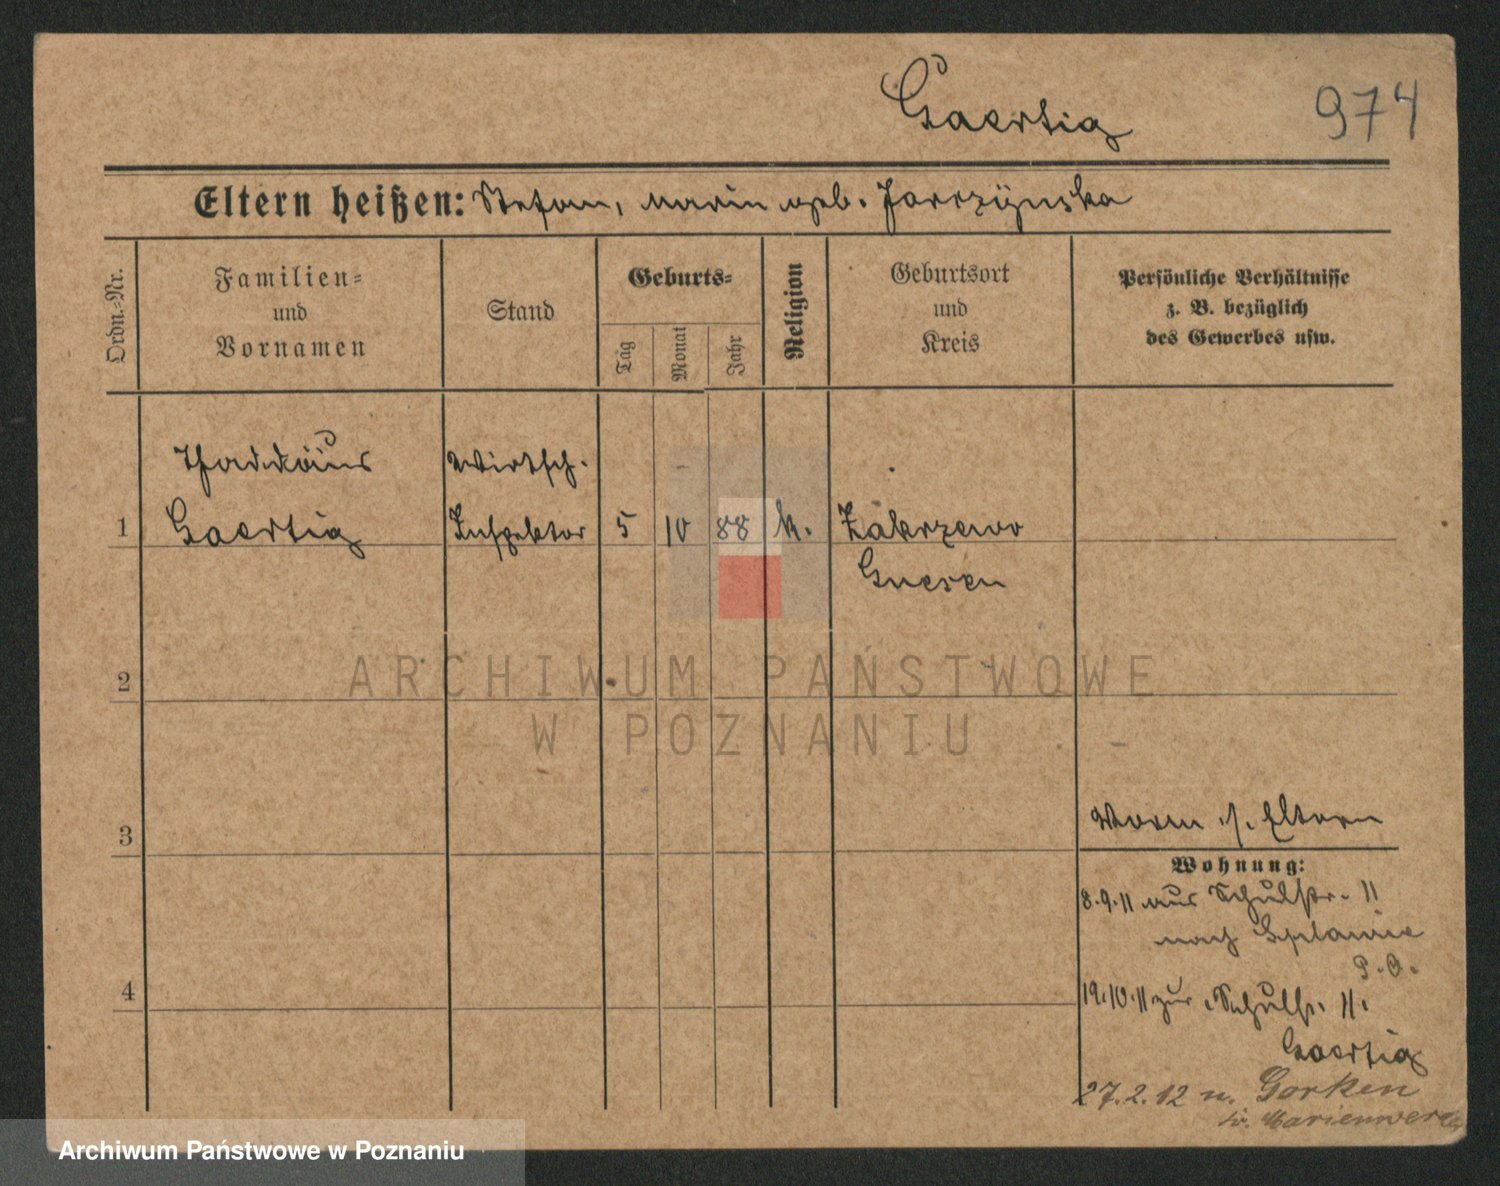 Gaertig
974
Eltern heißen: Stefan, Maria geb. Jarczynska
Ordn.-Nr.
Familien-
und
Vornamen
Stand
Geburts-
Tag
Monat
Jahr
Religion
Geburtsort
und
Kreis
Persönliche Verhältnisse
z. B. bezüglich
des Gewerbes usw.
Thaddäus
Wirtsch.
1
Gaertig
Inspektor
5
10
88
k.
Zakrzewo
Gnesen
2
ARCHIWUM PAŃSTWOWE
W POZNANIU
3
Eltern
Wohnung:
8.9.11 aus Schulstr. 11
nach
P.O.
4
19.10.11 zur Schulstr. 11.
Gaertig
27.2.12 n. Gorken
Marienwerder
Archiwum Państwowe w Poznaniu